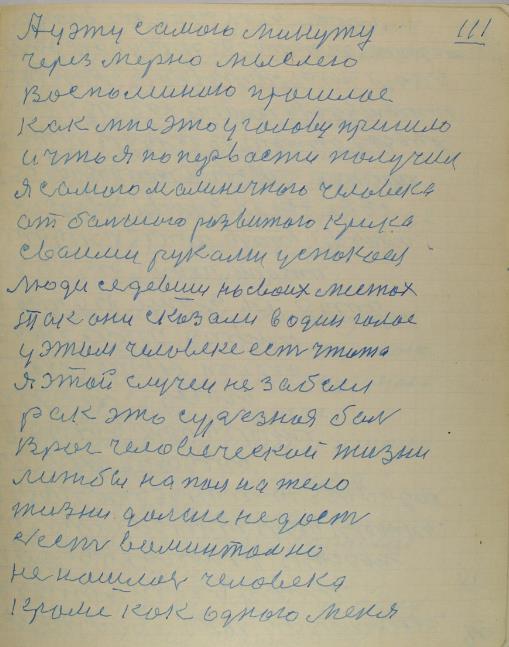 111
А уэту самаго минуту
через мерно мыслею
воспоминаю прошлае
как мне это у голову пришло
и что я по первасти получил
я самого малинечного человека
от большого развитого крика
сваими руками успокоел
люди седевши на своих местах
так они сказали в один голас
у этом человеке есть чтота
я этой случеи не забыл
рак это сурьезная бал
враг человеческой жизни
лижбы напал на тело
жизни дальше недаст
есть ваминтомно
не нашлось человека
кроме как одного меня